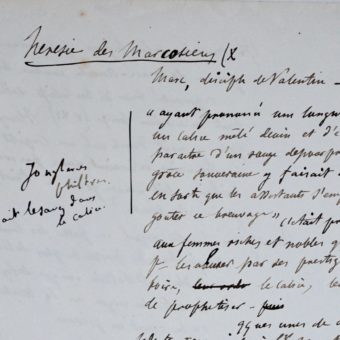 heresie des Marcosiens (x
Marc, disciple de Valentin –
« ayant prononcé une longue
un calice mêlé de vin et d'e
paraitre d'un rouge de pourp
grace souveraine y faisait
en sorte que les assistants s'emp
gouter ce breuvage » (c'était p
aux femmes riches et nobles q
par ses prestig
le calice, le
de prophetiser –
qques unes de
Jongleries
philtres
ait le sang dans
le calice